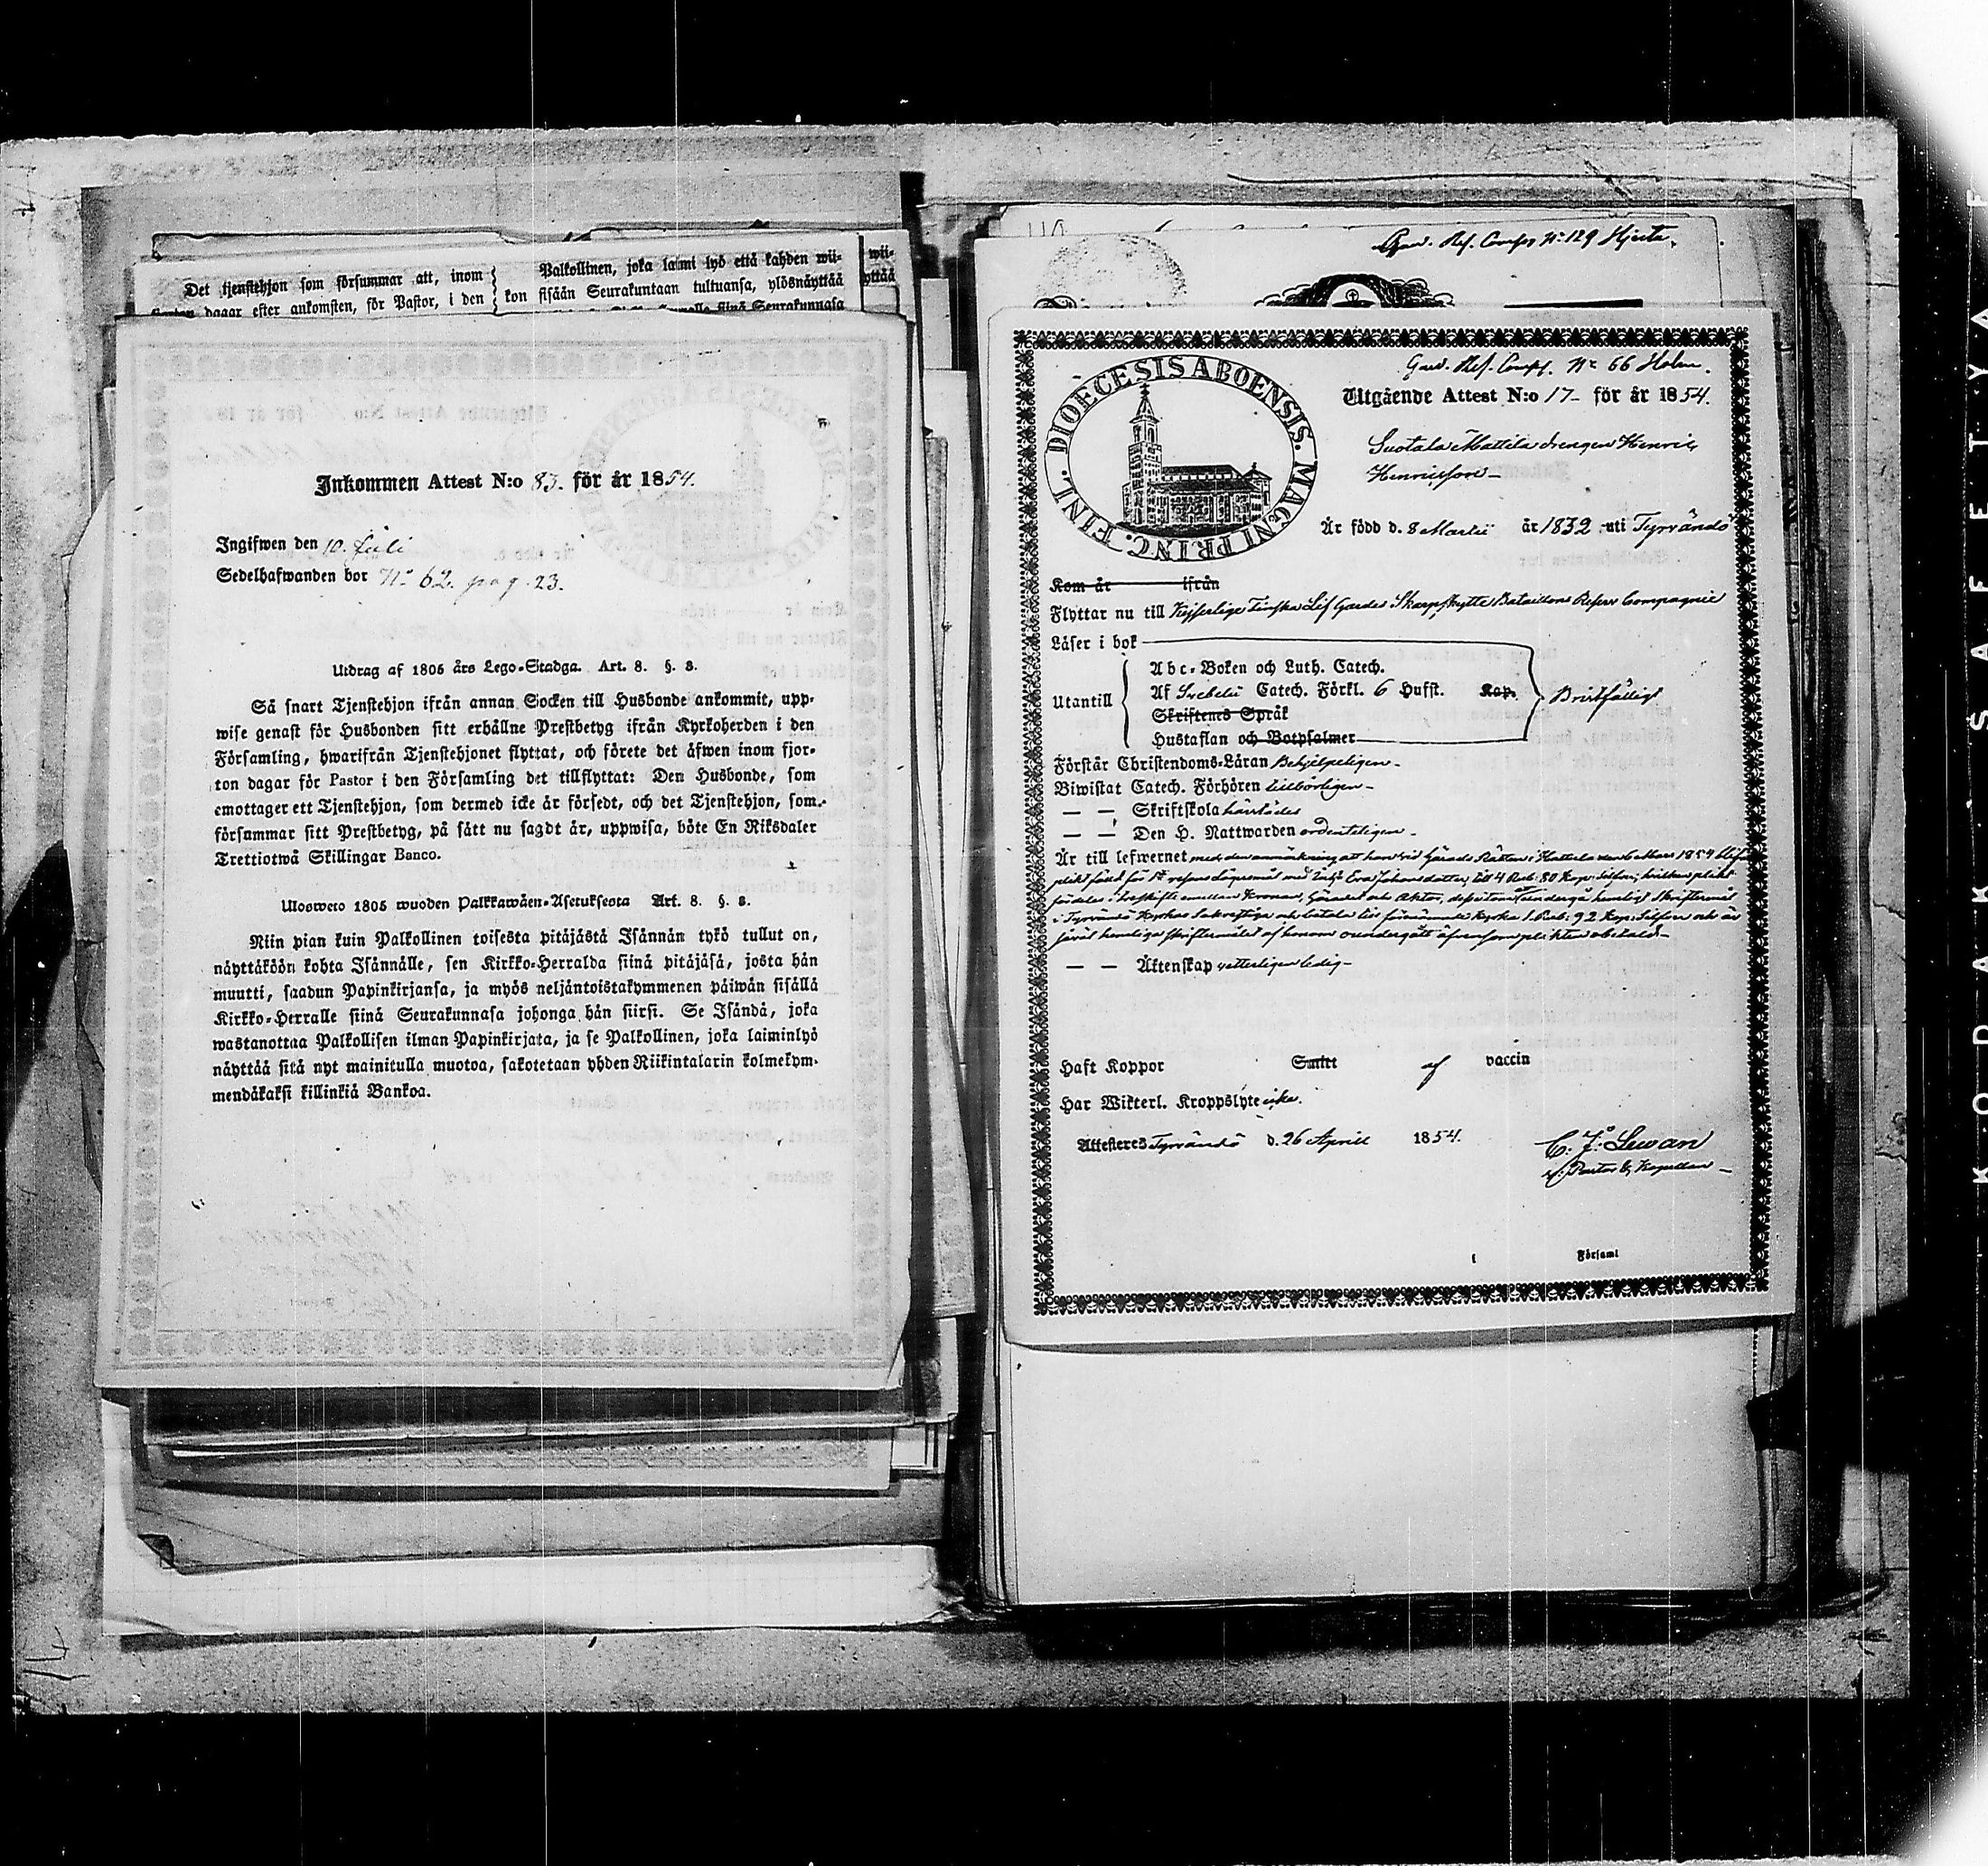 Det tjenstehjon som försummar att, inom
dagar efter ankomsten, för Pastor, i den
Palkollinen, joka laimi lyö että kahden wii-
kon sisään Seurakuntaan tultuansa, ylösnäyttää
siinä Seurakunnasa
wii-
yttää
Inkommen Attest N:o 83. för år 1854.
Ingifwen den 10. Juli
Sedelhafwanden bor No 62. pag. 23.
Utdrag af 1805 års Lego-Stadga. Art. 8. §. 8.
Så snart Tjenstehjon ifrån annan Socken till Husbonde ankommit, upp-
wise genast för Husbonden sitt erhållne Prestbetyg ifrån Kyrkoherden i den
Församling, hwarifrån Tjenstehjonet flyttat, och förete det äfwen inom fjor-
ton dagar för Pastor i den Församling det tillflyttat: Den Husbonde, som
emottager ett Tjenstehjon, som dermed icke är försedt, och det Tjenstehjon, som
försummar sitt Prestbetyg, på sätt nu sagdt är, uppwisa, böte En Riksdaler
Trettiotwå Skillingar Banco.
Ulosweto 1805 wuoden Palkkawäen-Asetuksesta Art. 8. §. 8.
Niin pian kuin Palkollinen toisesta pitäjästä Isännän tykö tullut on,
näyttäköön kohta Isännälle, sen Kirkko-Herralda siinä pitäjäsä, josta hän
muutti, saadun Papinkirjansa, ja myös neljäntoistakymmenen päiwän sisällä
Kirkko-Herralle siinä Seurakunnasa johonga hän siirsi. Se Isändä, joka
wastanottaa Palkollisen ilman Papinkirjata, ja se Palkollinen, joka laiminlyö
näyttää sitä nyt mainitulla muotoa, sakotetaan yhden Riikintalarin kolmekym-
mendäkaksi killinkiä Bankoa.
Gard. Res. Comp. No 129 Hjerta.
Gard. Res. Comp. No 66 Holm.
DIOECESIS ABOENSIS. MAGNI PRINC. FINL.
Utgående Attest N:o 17 för år 1854.
Suotala Mattila drengen Henric
Henricsson
Är född d. 8 Martii år 1832 uti Tyrvändö
Kom år ifrån
Flyttar nu till Kejserliga Finska Lif Gardes Skarpskytte Bataillons Reserv Compagnie
Läser i bok
Utantill
Abc-Boken och Luth. Catech.
Af Svebelii Catech. Förkl. 6 Hufst. Kap.
Skriftenes Språk
Hustaflan och Botpsalmer
Bristfälligt
Förstår Christendoms-Läran Behjelpeligen
Biwistat Catech. Förhören tillbörligen
— — Skriftskola
— — Den H. Nattwarden ordenteligen
Är till lefwernet med den anmärkning att han vid Härads Rätten i Hattula den 6 Mars 1854 blifvit
plikt fälld för 1a resans lägersmål med Eva Johansdotter, till 4 Rub: 80 Kop: silfver, hvilken plikt
fördeles i treskifte emellan Kronan, Häradet och Aktor, undergå hemligt skriftermål
i Tyrvändö Kyrkas Sakristiga och betala till kyrka 1 Rub: 92 Kop: Silfver och är
såväl hemliga skriftermålet af honom undergått äfvensom plikten obetald
— — Äktenskap vetterligen ledig
Haft Koppor Smitt af vaccin
Har Wikterl. Kroppslyte icke.
Attesteras Tyrvändö d. 26 April 1854.
C. J. Lewan
v. Pastor & Kapellan
i Församl
KODAK SAFETY A F